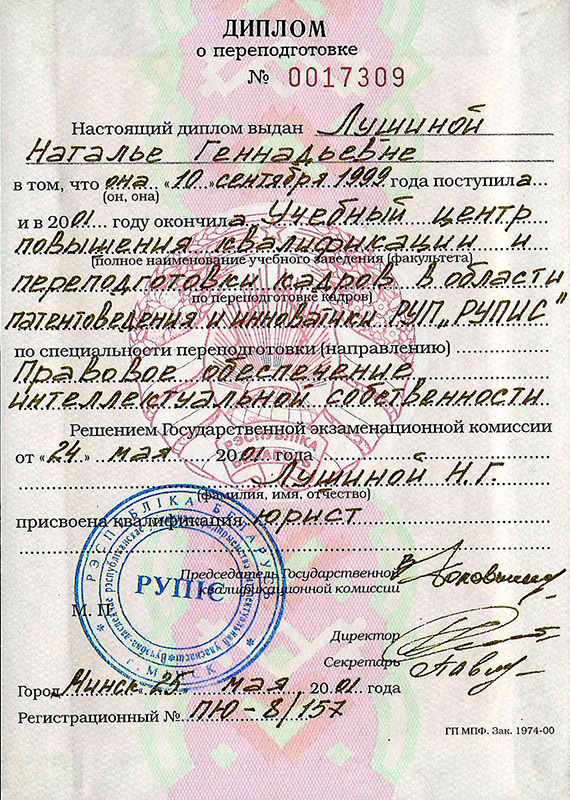 ДИПЛОМ
о переподготовке
№ 0017309
Настоящий диплом выдан Лушиной
Наталье Геннадьевне
в том, что она «10» сентября 1999 года поступила
(он, она)
и в 2001 году окончила Учебный центр
повышения квалификации и
(полное наименование учебного заведения (факультета)
переподготовки кадров в области
по переподготовке кадров)
патентоведения и инноватики РУП „РУПИС"
по специальности переподготовки (направлению)
Правовое обеспечение
интеллектуальной собственности
Решением Государственной экзаменационной комиссии
РЭСПУБЛІКА
БЕЛАРУСЬ
от «24» мая 2001 года
Лушиной Н.Г.
(фамилия, имя, отчество)
присвоена квалификация юрист
РЭСПУБЛІКА БЕЛАРУСЬ
РУПІС
г. МІНСК
Председатель Государственной
квалификационной комиссии
М. П.
Директор
Секретарь
Город Минск «25» мая 2001 года
Регистрационный № ПЮ-8/157
ГП МПФ. Зак. 1974-00